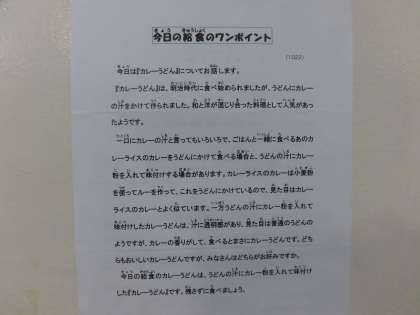 今日の給食のワンポイント
(1022)
今日は『カレーうどん』についてお話します。
『カレーうどん』は、明治時代に食べ始められましたが、うどんにカレー
の汁をかけて作られました。和と洋が混じり合った料理として人気があっ
たようです。
一口にカレーの汁と言ってもいろいろで、ごはんと一緒に食べるあのカ
レーライスのカレーをうどんにかけて食べる場合と、うどんの汁にカレー
粉を入れて味付けする場合があります。カレーライスのカレーは小麦粉
を使ってルーを作って、これをうどんにかけているので、見た目はカレー
ライスのカレーとよく似ています。一方うどんの汁にカレー粉を入れて
味付けしたカレーうどんは、汁に透明感があり、見た目は普通のうどんの
ようですが、カレーの香りがして、食べるとまさにカレーうどんです。どち
らもおいしいカレーうどんですが、みなさんはどちらがお好みですか。
今日の給食のカレーうどんは、うどんの汁にカレー粉を入れて味付け
した『カレーうどん』です。残さずに食べましょう。